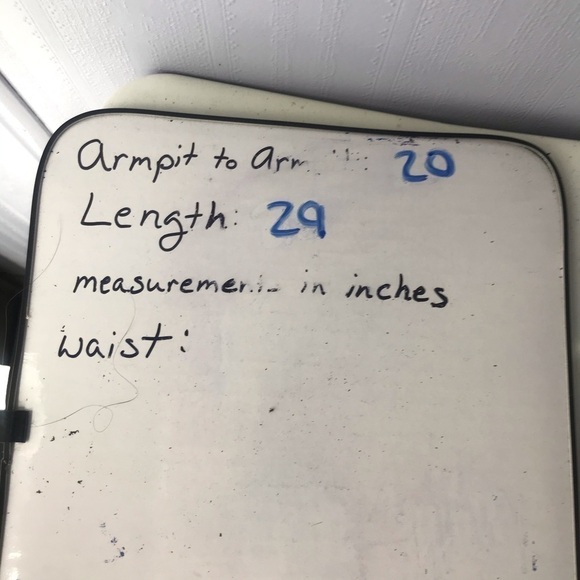 Armpit to Arm : 20
Length: 29
measuremen in inches
Waist: